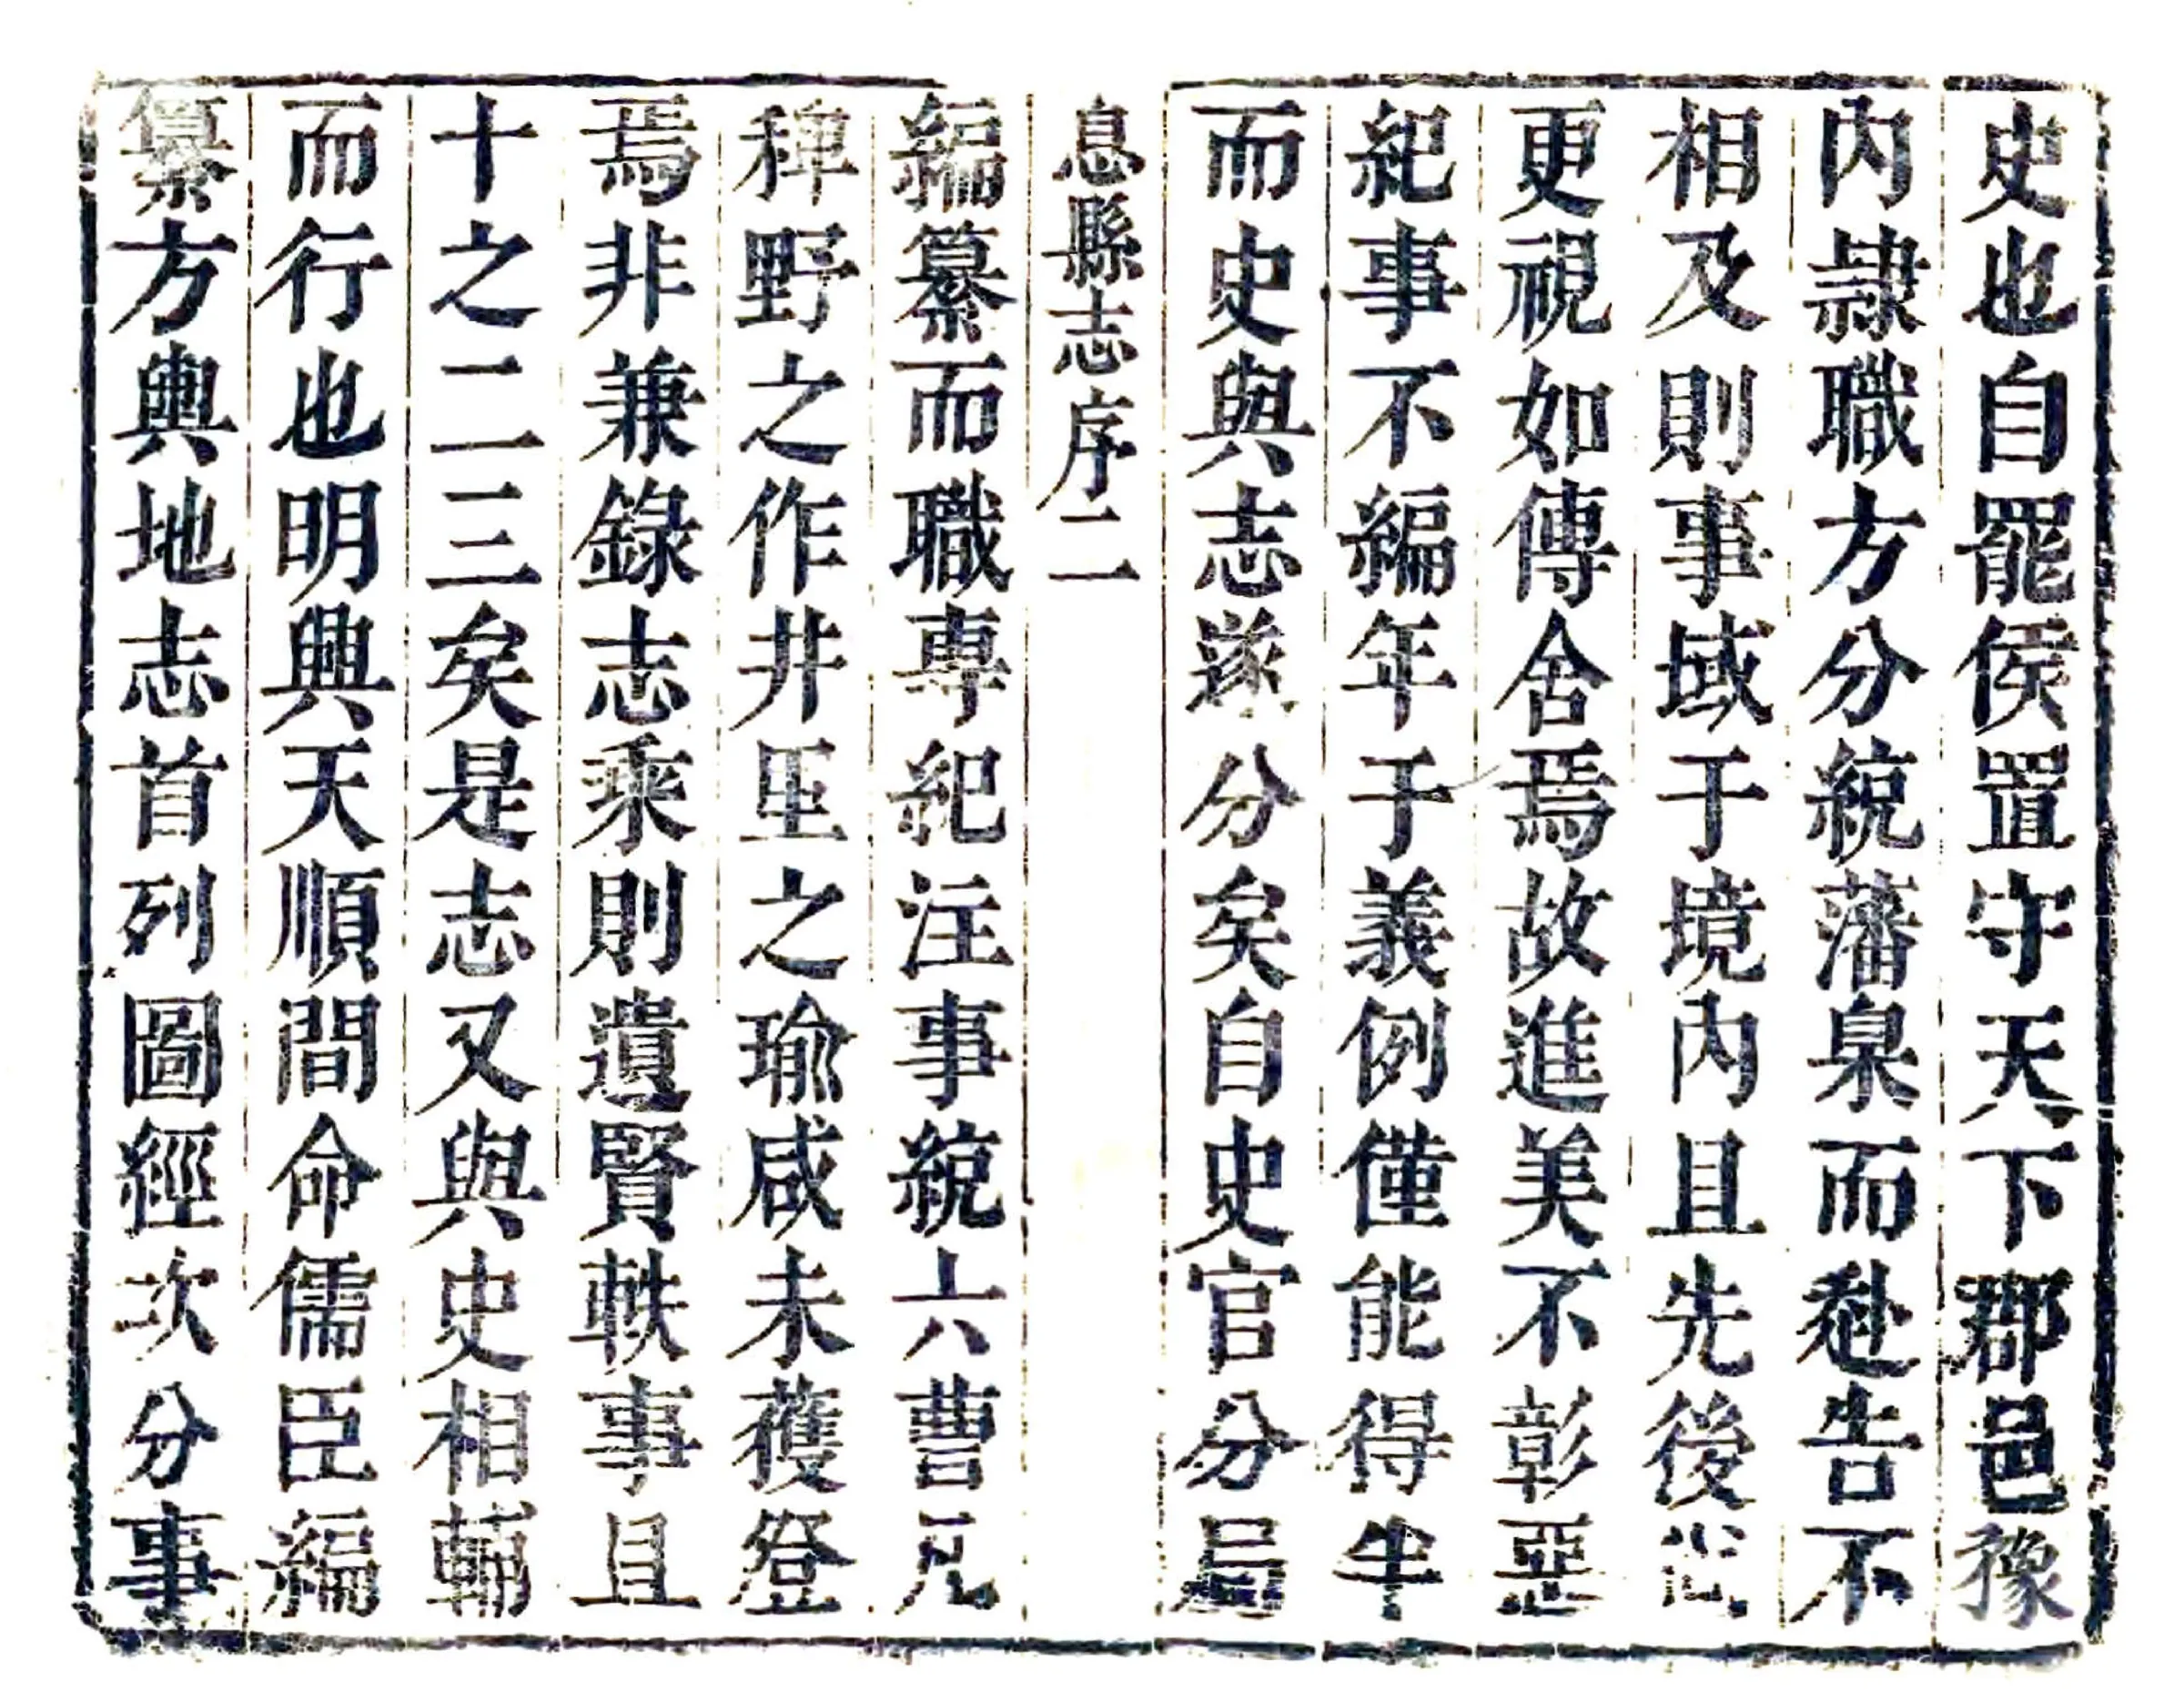 史也自罷侯置守天下郡邑豫
內隷職方分統藩臬而赴告不
相及則事域于境內且先後
更視如傳舍焉故進美不彰惡
紀事不編年于義例僅能得半
而史與志遂分矣自史官分局
息縣志序二
編纂而職専紀注事統六曹凡
稗野之作井里之瑜咸未獲登
焉非兼錄志乘則遺賢軼事且
十之二三矣是志又與史相輔
而行也明興天順間命儒臣編
纂方輿地志首列圖經次分事